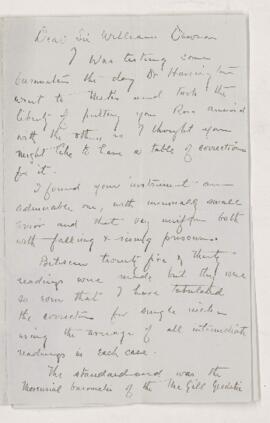 Dear Sir William Dawson
I was testing some
barometers the day Dr Harrington
went to Metis and took the
liberty of putting your Ross aneroid
with the others as I thought you
might like to have a table of corrections
for it.
I found your instrument an
admirable one, with unusually small
error and that very uniform both
with falling & rising pressure.
Between twenty five & thirty
readings were made but they were
so even that I have tabulated
the correction for single inches
using the average of all intermediate
readings in each case.
The standard used was the
Memorial barometer of the McGill